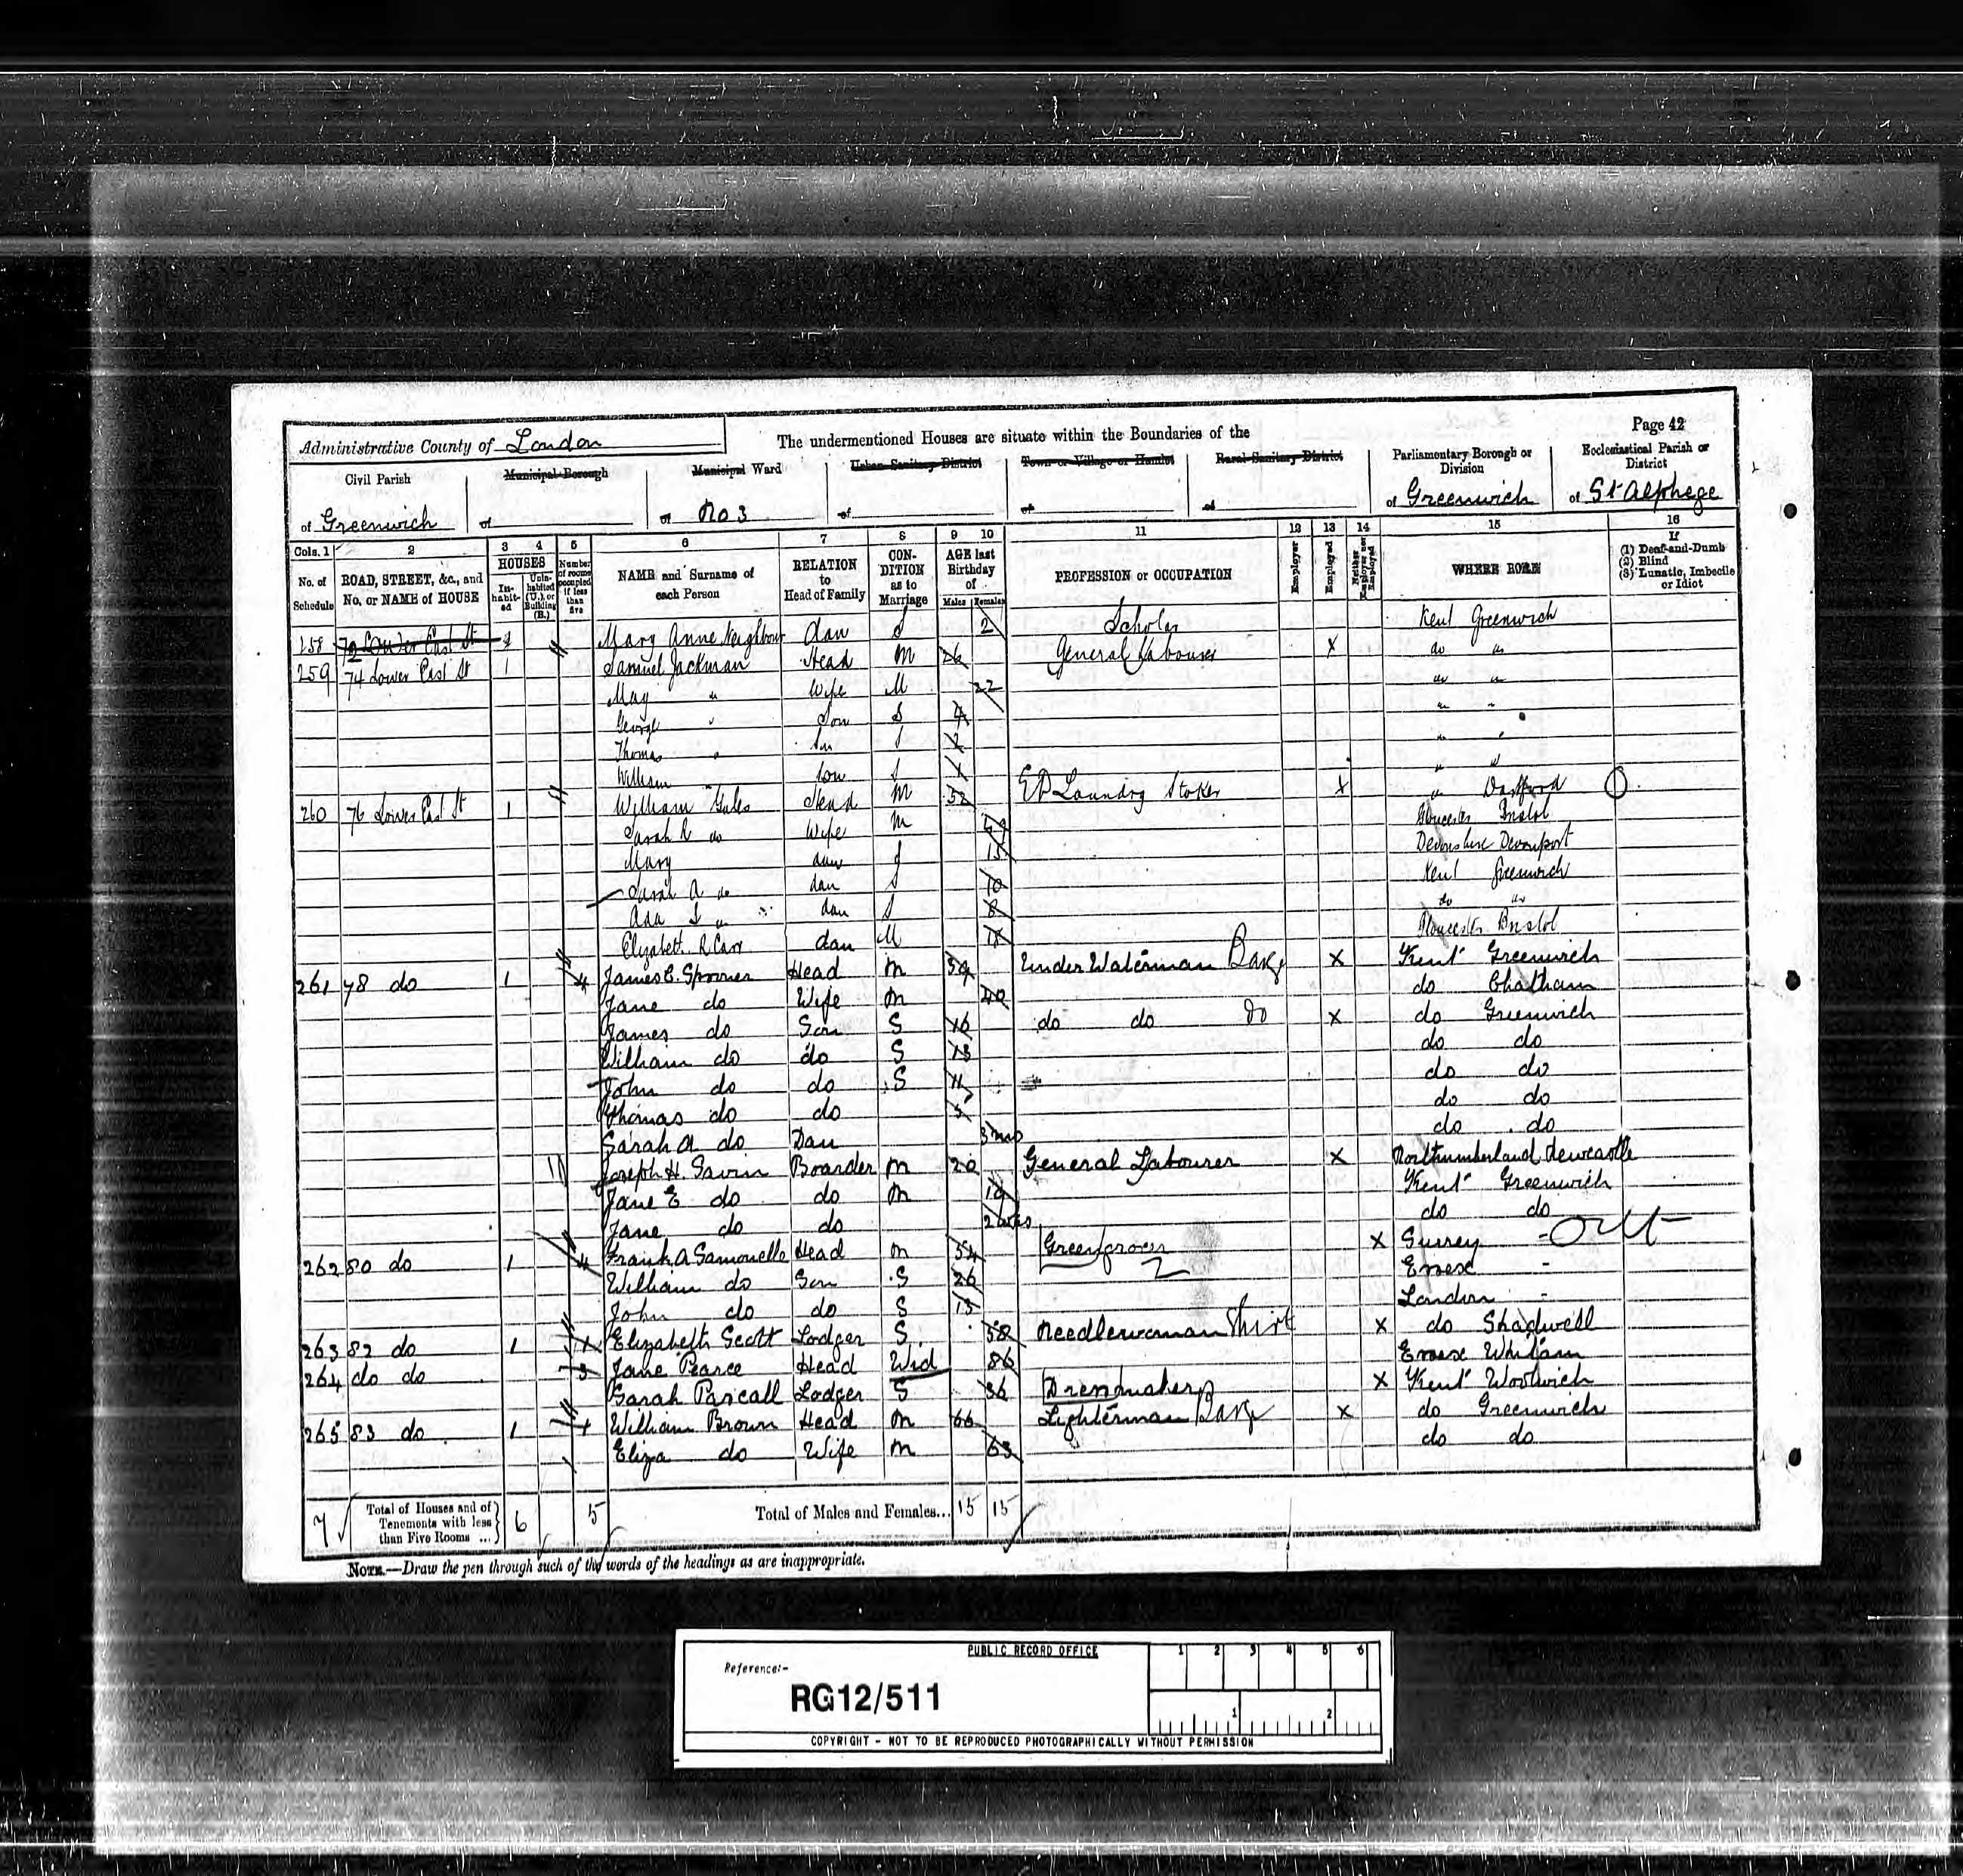 Page 42
Administrative County of London
The undermentioned Houses are situate within the Boundaries of the
Civil Parish of Greenwich
Municipal Borough of
Municipal Ward of No 3
Urban Sanitary District of
Town or Village or Hamlet of
Rural Sanitary District of
Parliamentary Borough or Division of Greenwich
Ecclesiastical Parish or District of St Alphege
Cols. 1 2 3 4 5 6 7 8 9 10 11 12 13 14 15 16
No. of Schedule
ROAD, STREET, &c., and No. or NAME of HOUSE
HOUSES
In-habit-ed
Unin-habited (U.) or Building (B.)
Number of rooms occupied if less than five
NAME and Surname of each Person
RELATION to Head of Family
CON-DITION as to Marriage
AGE last Birthday of
Males Females
PROFESSION or OCCUPATION
Employer
Employed
Neither Employer nor Employed
WHERE BORN
If
(1) Deaf-and-Dumb
(2) Blind
(3) Lunatic, Imbecile or Idiot
258 72 Lower East St Mary Anne Neighbour dau S 2 Scholar Kent Greenwich
259 74 Lower East St 1 Samuel Jackman Head M 26 General Labourer X do "
May " Wife M 22 do "
George " Son S 4 " "
Thomas " Son S " "
William Son S " "
260 76 Lower East St 1 William Head M 52 Laundry Stoker X " Dartford
Sarah do Wife M Gloucester Bristol
Mary dau S 15 Devonshire Devonport
Sarah A do dau S 10 Kent Greenwich
Ada " dau S 8 do do
Elizabeth R Carr dau M 18 Gloucester Bristol
261 78 do 1 4 James E. Spooner Head M 39 Under Waterman Barge X Kent Greenwich
Jane do Wife M 40 do Chatham
James do Son S 16 do do do X do Greenwich
William do do S 13 do do
John do do S 11 do do
Thomas do do 5 do do
Sarah A do Dau 3 mo do do
Joseph H. Gavin Boarder M 20 General Labourer X Northumberland Newcastle
Jane E do do M 19 Kent Greenwich
Jane do do do do
262 80 do 1 4 Frank A Samouelle Head M 54 Greengrocer X Surrey -
William do Son S 26 Essex -
John do do S 15 London -
263 82 do 1 1 Elizabeth Scott Lodger S 58 Needlewoman Shirt X do Shadwell
264 do do 3 Jane Pearce Head Wid 86 Essex Witham
Sarah Pascall Lodger S 36 Dressmaker X Kent Woolwich
265 83 do 1 4 William Brown Head M 66 Lighterman Barge X do Greenwich
Eliza do Wife M 63 do do
7 Total of Houses and of Tenements with less than Five Rooms ... 6 5 Total of Males and Females... 15 15
NOTE.—Draw the pen through such of the words of the headings as are inappropriate.
PUBLIC RECORD OFFICE
1 2 3 4 5 6
Reference:-
RG12/511
1 2
COPYRIGHT - NOT TO BE REPRODUCED PHOTOGRAPHICALLY WITHOUT PERMISSION